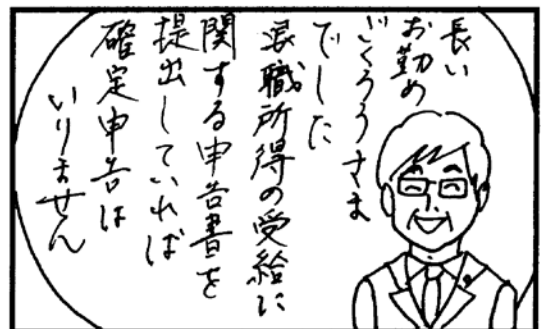 長い
お勤め
ごくろうさま
でした
退職所得の受給に
関する申告書を
提出していれば
確定申告は
いりません